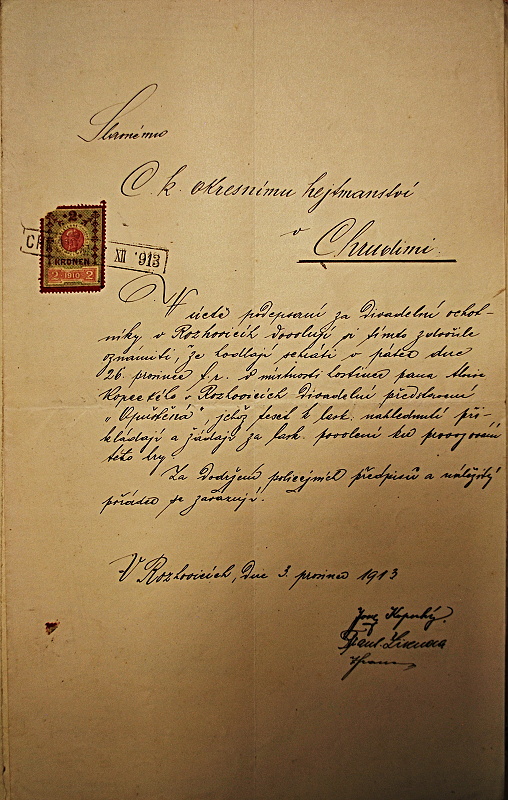 Slavnému
C. k. okresnímu hejtmanství
v
Chrudimi.
2
KRONEN
2 1910 2
XII 913
V úctě podepsaní za divadelní ochot-
níky v Rozhovicích dovolují si tímto zdvořile
oznámiti, že hodlají sehráti v pátek dne
26. prosince t. r. v místnosti hostince pana Aloise
Kopeckého v Rozhovicích divadelní představení
"Opuštěná", jehož text k lask. nahlédnutí při-
kládají a žádají za lask. povolení ku provozování
této hry.
Za dodržení policejních předpisů a náležitý
pořádek se zaručují.
V Rozhovicích, dne 3. prosince 1913
Jos. Kopecký.